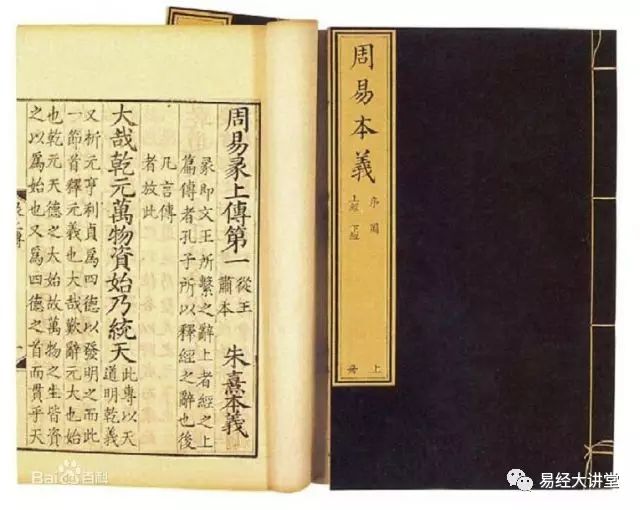 周易本義
序圖
上經 下經
上冊
周易彖上傳第一 從王肅本 朱熹本義
彖即文王所繫之辭上者經之上
篇傳者孔子所以釋經之辭也後
凡言傳
者放此
大哉乾元萬物資始乃統天 此專以天
道明乾義
又析元亨利貞爲四德以發明之而此
一節首釋元義也大哉歎辭元大也始
也乾元天德之大始故萬物之生皆資
之以爲始也又爲四德之首而貫乎天
Baidu百科
易经大讲堂